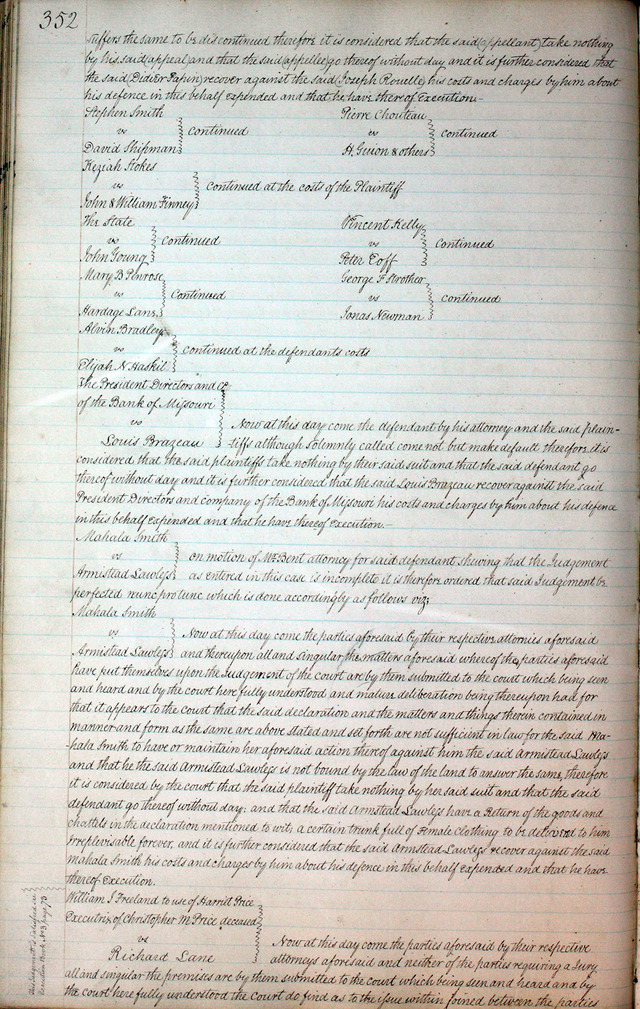 352
suffers the same to be discontinued therefore it is considered that the said (appellant) take nothing
by his said (appeal) and that the said (appellee) go thereof without day and it is further considered that
the said (Didier Papin) recover against the said (Joseph Rouelle) his costs and charges by him about
his defence in this behalf expended and that he have thereof Execution.-
Stephen Smith
vs
David Shipman
continued
Pierre Chouteau
vs
H. Guion & others
continued
Keziah Stokes
vs
John & William Finney
continued at the costs of the Plaintiff
The State
vs
John Young
continued
Vincent Kelly
vs
Peter Coff
continued
Mary B Penrose
vs
Hardage Lane
continued
George F Strother
vs
Jonas Newman
continued
Alvin Bradley
vs
Elijah N Haskil
continued at the defendants costs
The President Directors and Co
of the Bank of Missouri
vs
Louis Brazeau
Now at this day come the defendant by his attorney and the said plain-
tiffs although solemnly called come not but make default therefore it is
considered that the said plaintiffs take nothing by their said suit and that the said defendant go
thereof without day and it is further considered that the said Louis Brazeau recover against the said
President Directors and company of the Bank of Missouri his costs and charges by him about his defence
in this behalf expended and that he have thereof execution.-
Mahala Smith
vs
Armistead Lawless
on motion of Mr Bent attorney for said defendant shewing that the Judgement
as entered in this case is incomplete it is therefore ordered that said Judgement be
perfected nunc pro tunc which is done accordingly as follows viz;
Mahala Smith
vs
Armistead Lawless
Now at this day come the parties aforesaid by their respective attornies aforesaid
and thereupon all and singular the matters aforesaid whereof the parties aforesaid
have put themselves upon the Judgement of the court are by them submitted to the court which being seen
and heard and by the court here fully understood and mature deliberation being thereupon had for
that it appears to the court that the said declaration and the matters and things therein contained in
manner and form as the same are above stated and set forth are not sufficient in law for the said Ma-
-hala Smith to have or maintain her aforesaid action thereof against him the said Armistead Lawless
and that he the said Armistead Lawless is not bound by the law of the land to answer the same, therefore
it is considered by the court that the said plaintiff take nothing by her said suit and that the said
defendant go thereof without day: and that the said Armstead Lawless have a Return of the goods and
chattels in the declaration mentioned to wit; a certain trunk full of Female clothing to be delivered to him
irreplevisable forever, and it is further considered that the said Armstead Lawless recover against the said
Mahala Smith his costs and charges by him about his defence in this behalf expended and that he have
thereof Execution.
William J Freeland to use of Harriet Price
Executrix of Christopher M Price deceased
vs
Richard Lane
Now at this day come the parties aforesaid by their respective
attorneys aforesaid and neither of the parties requiring a Jury
all and singular the premises are by them submitted to the court which being seen and heard and by
the court here fully understood the Court do find as to the issue within joined between the parties
This Judgment is satisfied see
Execution Book No 3 page 73